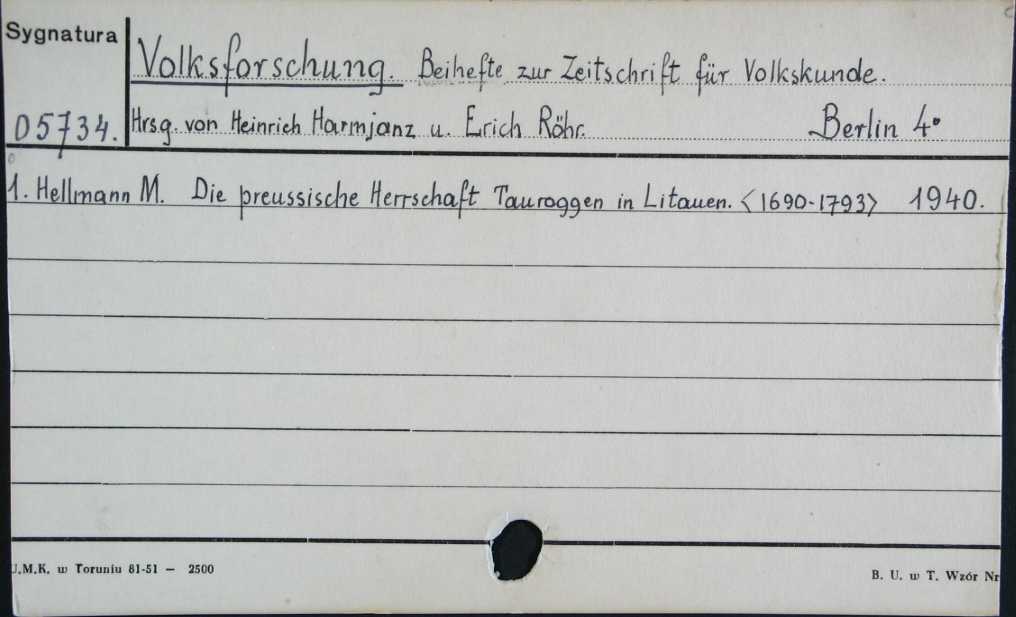 Sygnatura
Volksforschung. Beihefte zur Zeitschrift für Volkskunde.
05734. Hrsg. von Heinrich Harmjanz u. Erich Röhr. Berlin 4°
1. Hellmann M. Die preussische Herrschaft Tauroggen in Litauen. <1690-1793> 1940.
U.M.K. w Toruniu 81-51 — 2500
B. U. w T. Wzór Nr